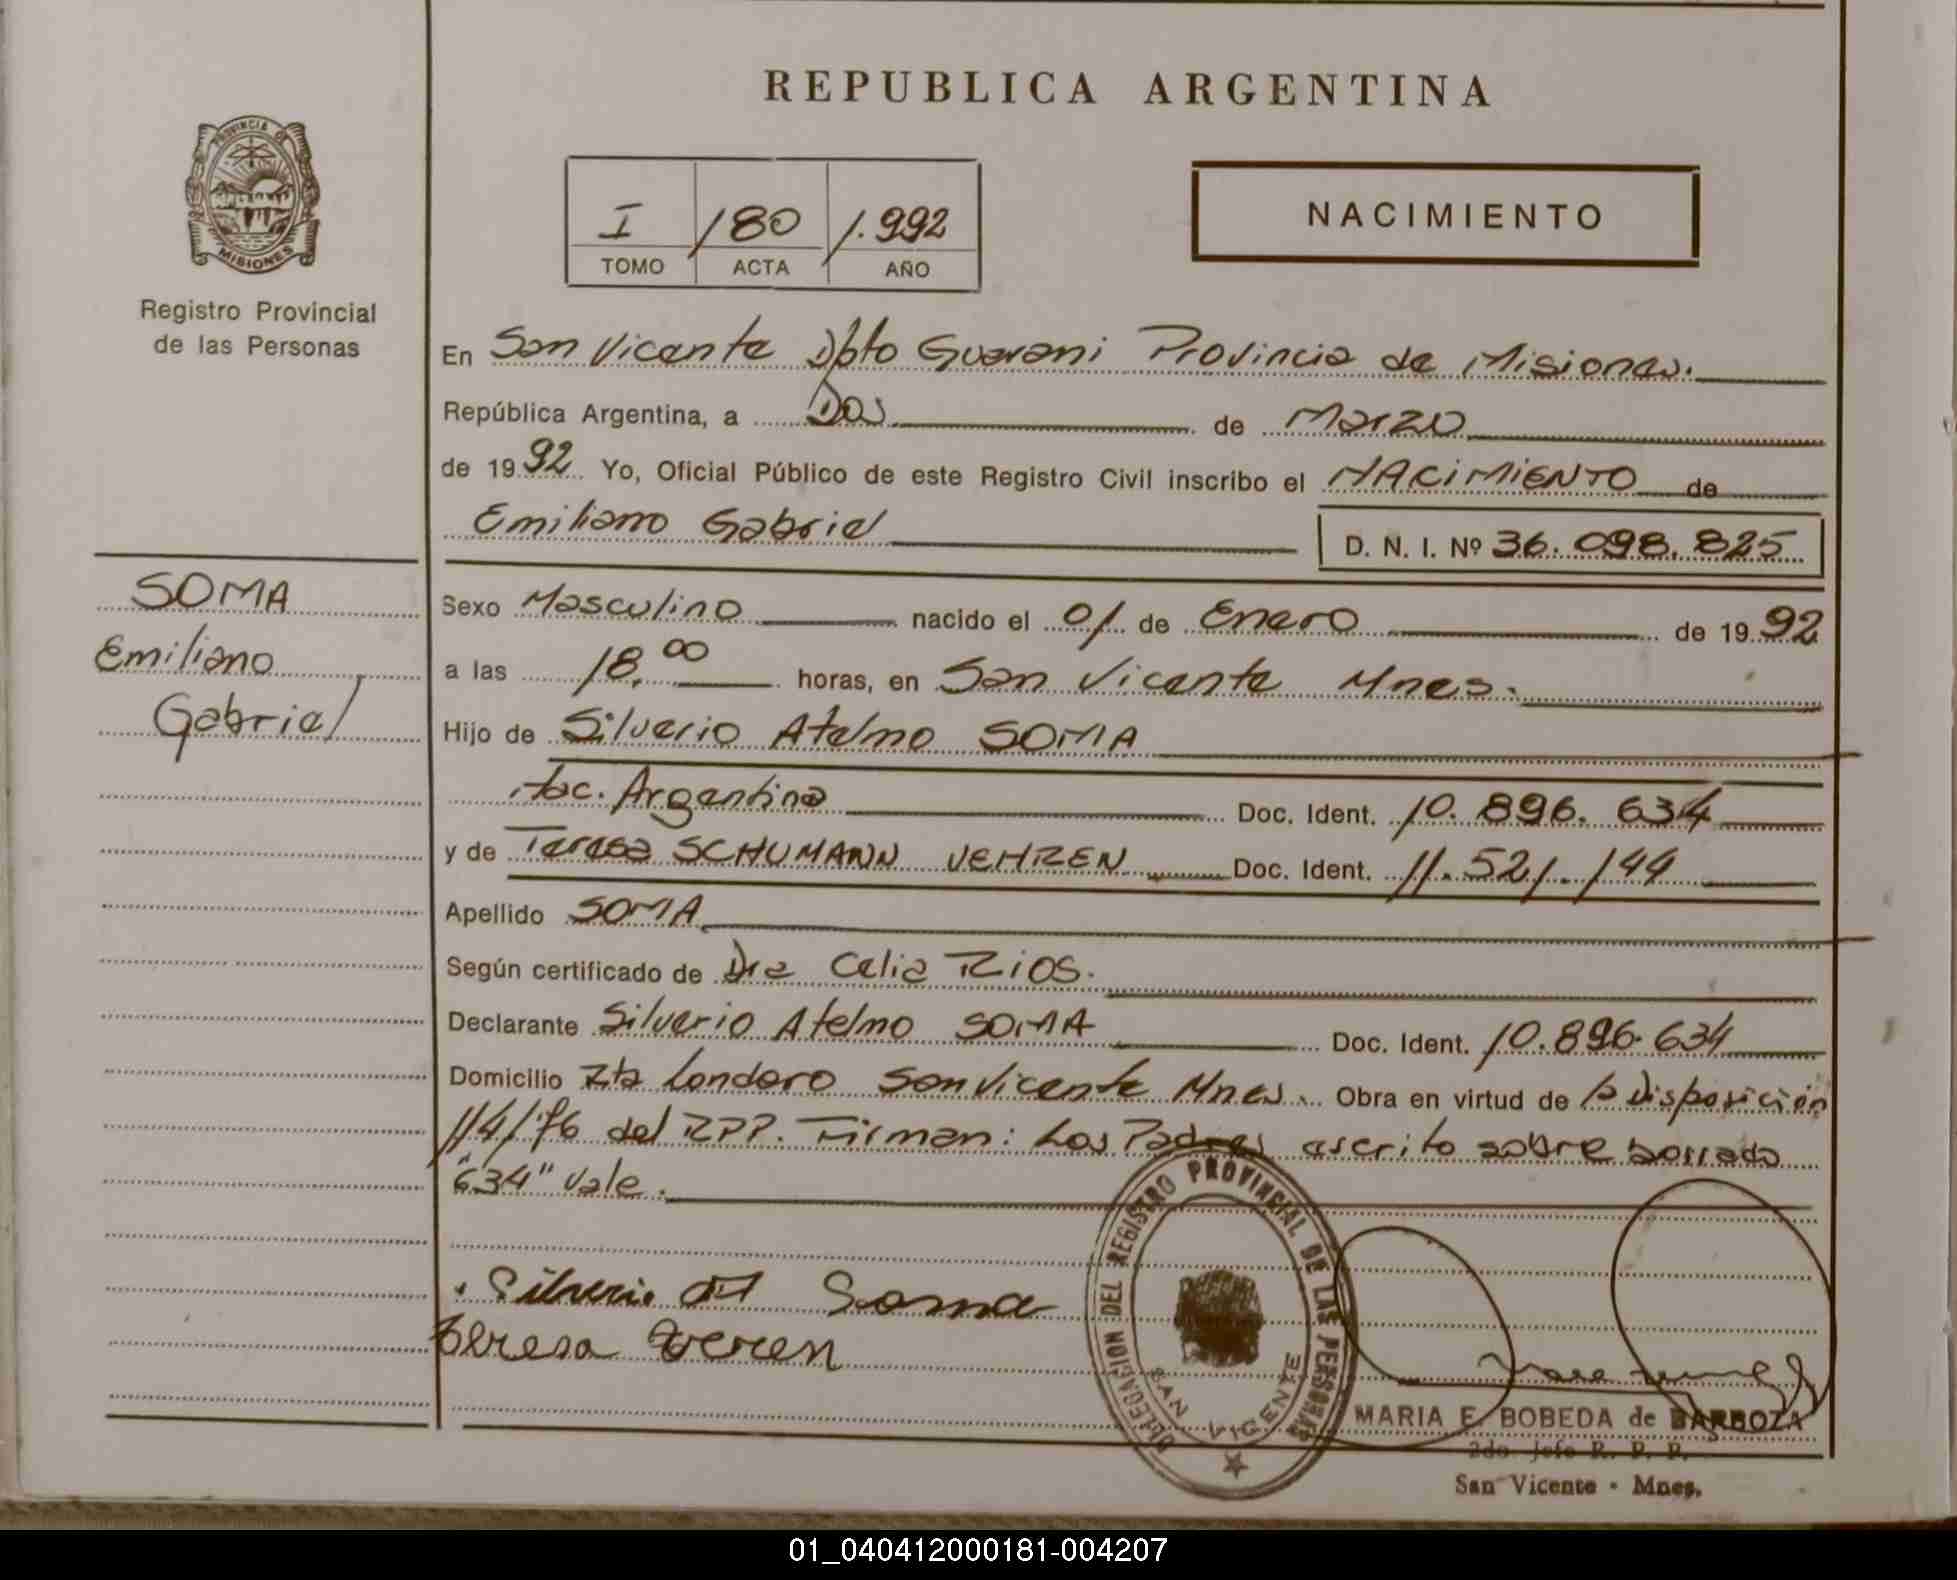 REPUBLICA ARGENTINA
PROVINCIA DE
MISIONES
Registro Provincial
de las Personas
I 180 1.992
TOMO ACTA AÑO
NACIMIENTO
En San Vicente Dpto Guarani Provincia de Misiones.
República Argentina, a Dos de Marzo
de 1992 Yo, Oficial Público de este Registro Civil inscribo el NACIMIENTO de
Emiliano Gabriel D. N. I. Nº 36.098.825
SOMA
Emiliano
Gabriel
Sexo Masculino nacido el 01 de Enero de 1992
a las 18,00 horas, en San Vicente Mnes.
Hijo de Silverio Atelmo SOMA
Nac. Argentina Doc. Ident. 10.896.634
y de Teresa SCHUMANN VEHREN Doc. Ident. 11.521.144
Apellido SOMA
Según certificado de Dra Celia Rios.
Declarante Silverio Atelmo SOMA Doc. Ident. 10.896.634
Domicilio Londero San Vicente Mnes. Obra en virtud de la Disposición
114/76 del RPP. Firman: Los Padres escrito sobre borrado
"634" Vale.
Silverio A Soma
Teresa
DELEGACION DEL REGISTRO PROVINCIAL DE LAS PERSONAS
SAN VICENTE
MARIA E. BOBEDA de BARBOZA
2do. Jefe R. P. P.
San Vicente - Mnes.
01_040412000181-004207